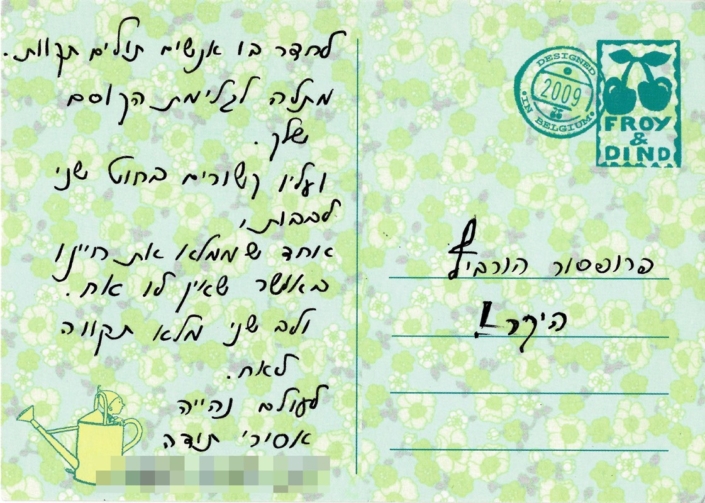 לחדר בו אנשים תולים תקוות.
מתלה לגלימת הקוסם
שלך.
ועליו קשורים בחוט שני
לבבות,
אחד שממלא את חיינו
באושר שאין לו אח.
ולב שני מלא תקווה
לאח.
לעולם נהייה
אסירי תודה
DESIGNED
2009
IN BELGIUM
FROY
&
DIND
פרופסור הורביץ
היקר!